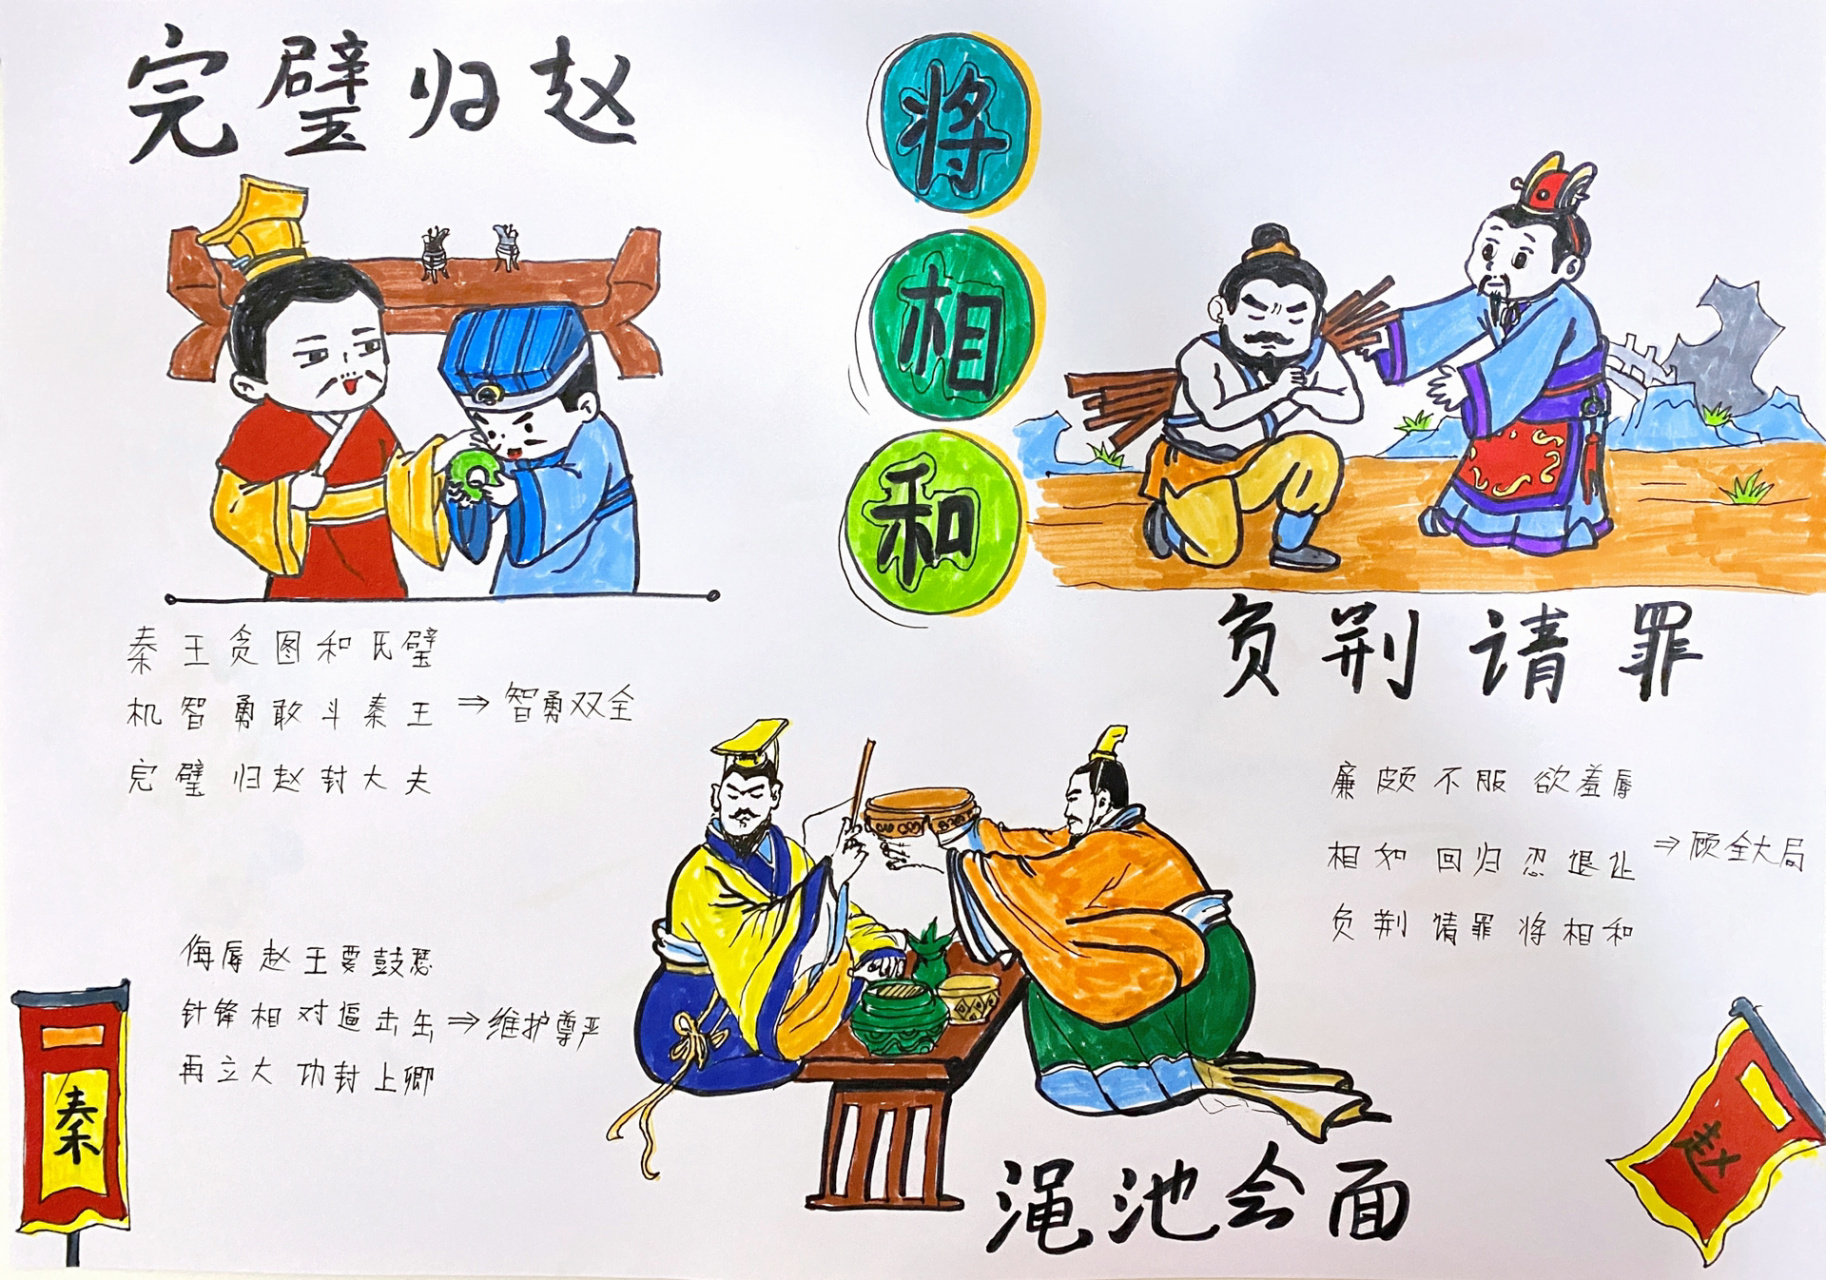 完璧归赵
将相和
秦王贪图和氏璧
机智勇敢斗秦王 ⇒ 智勇双全
完璧归赵封大夫
负荆请罪
廉颇不服欲羞辱
相如回归忍退让 ⇒ 顾全大局
负荆请罪将相和
侮辱赵王要鼓瑟
针锋相对逼击缶 ⇒ 维护尊严
再立大功封上卿
渑池会面
秦
赵